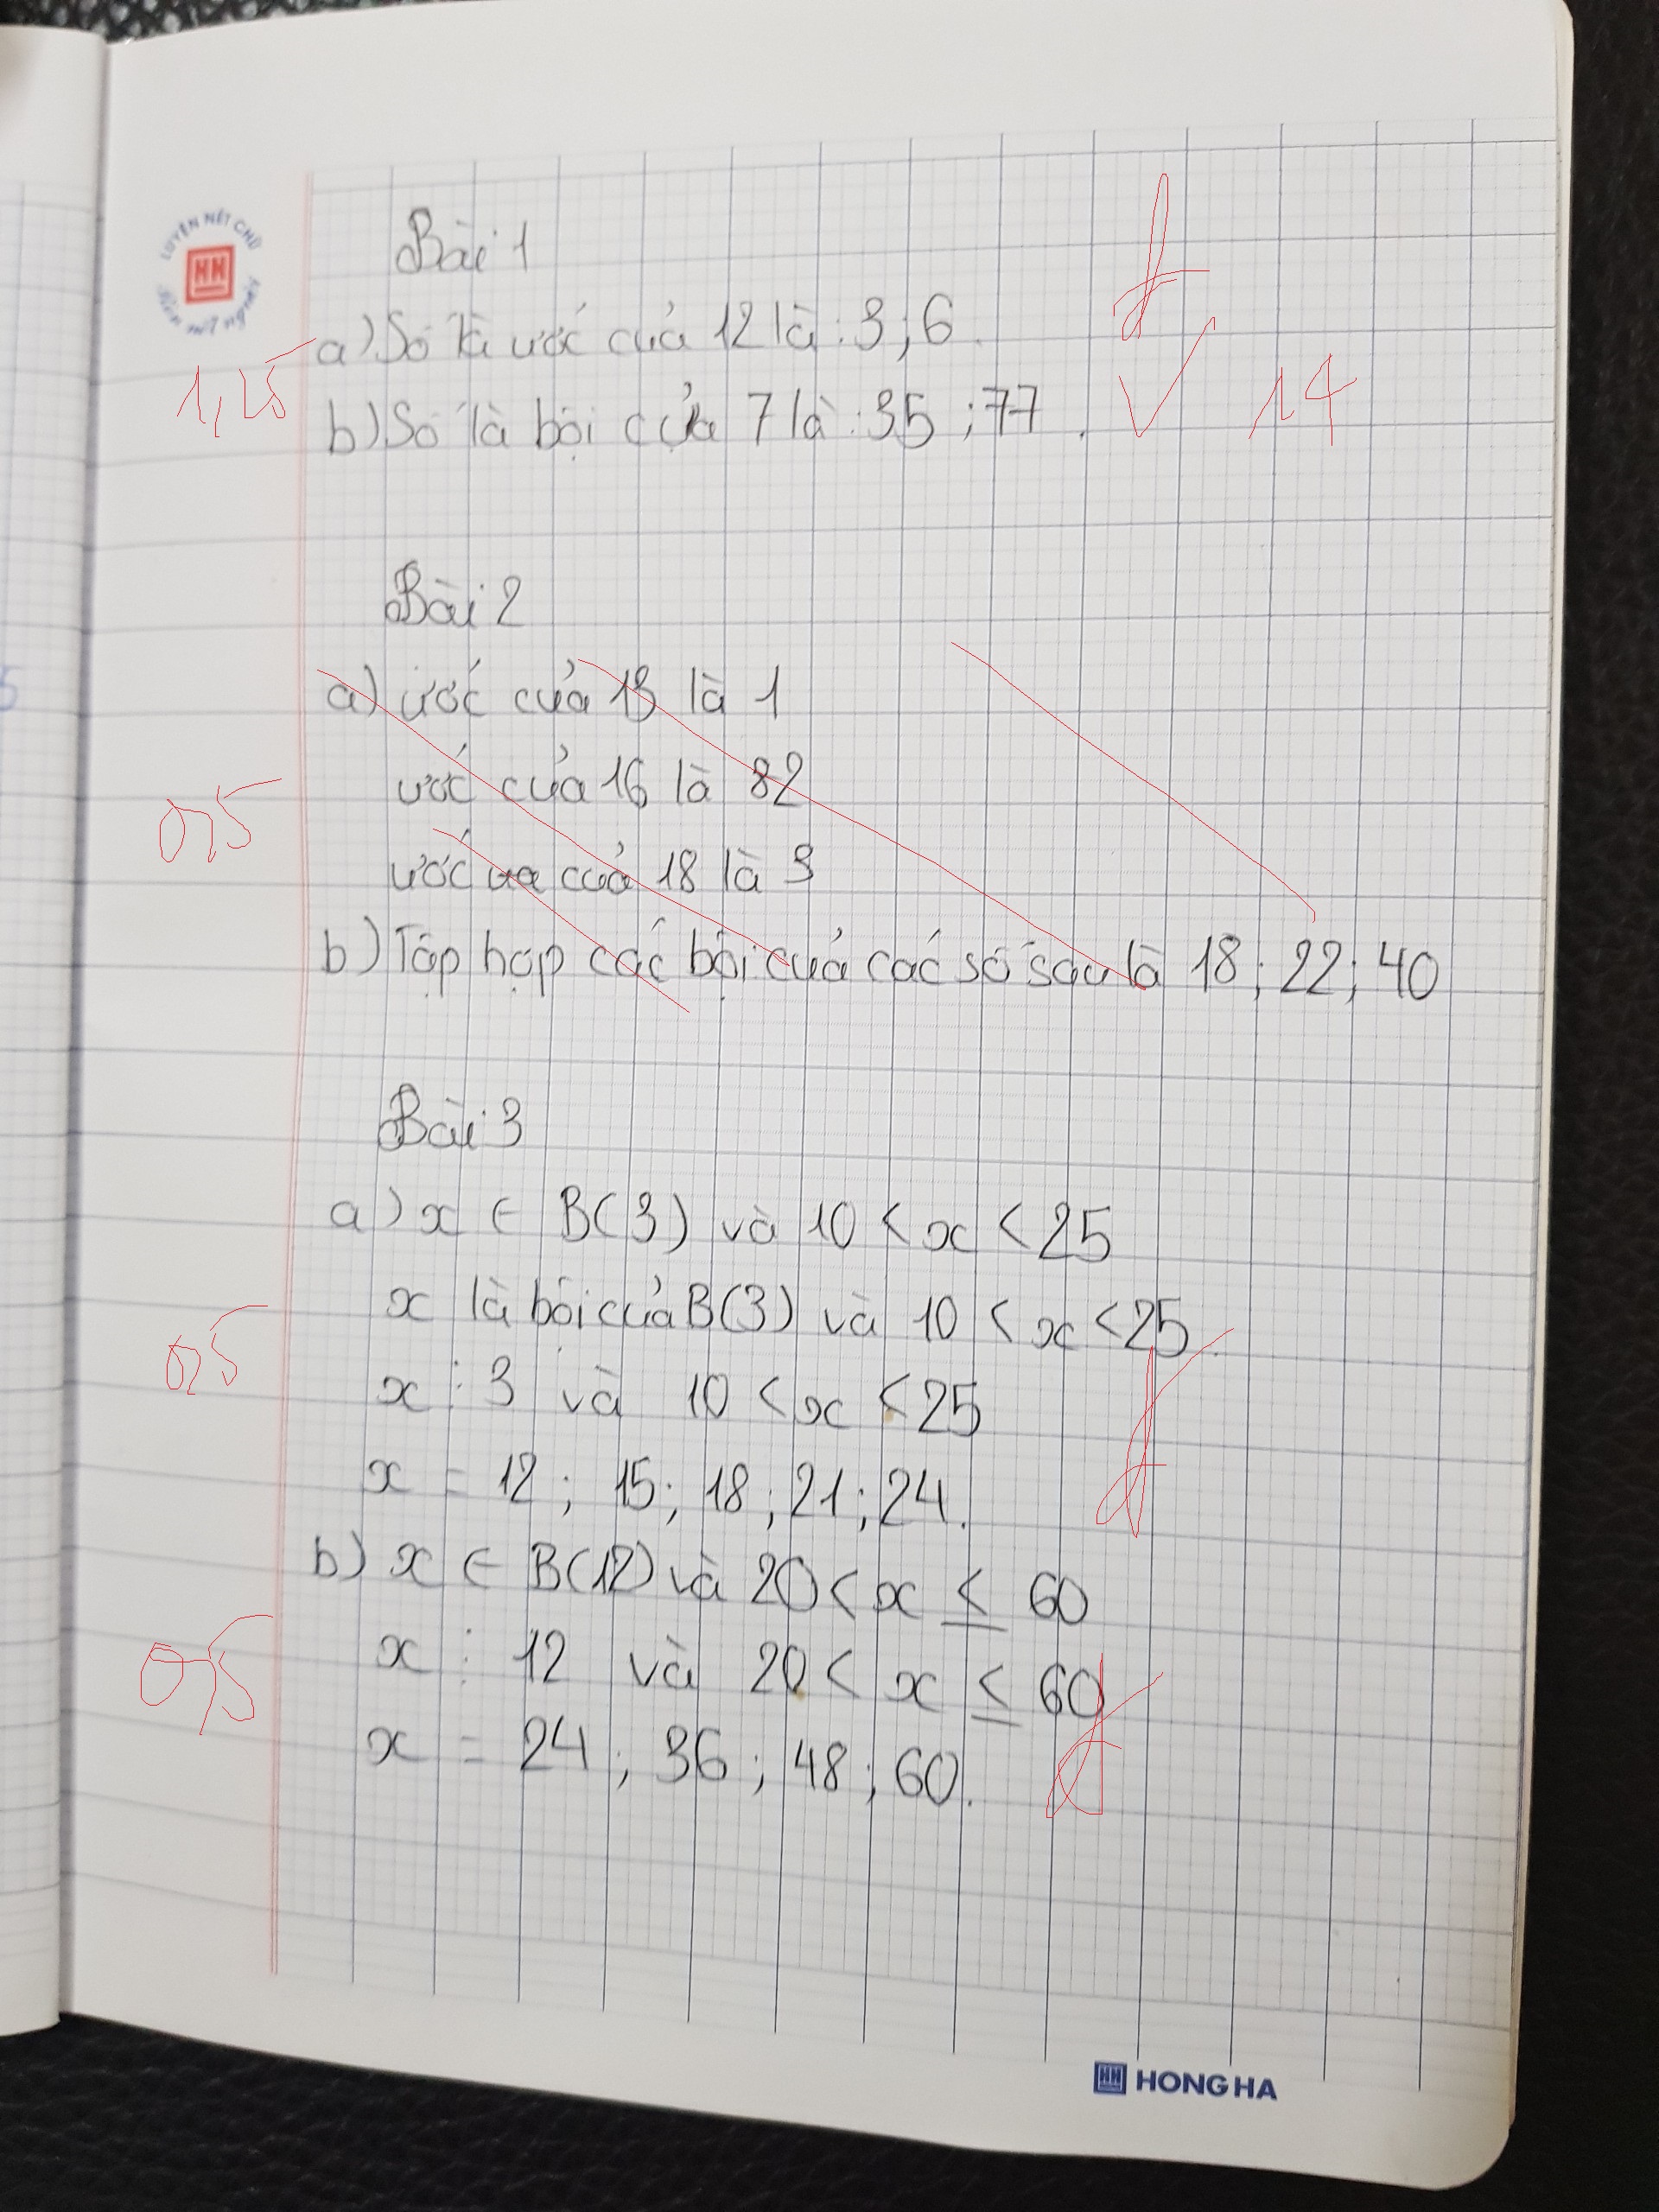 LUYỆN NÉT CHỮ
HH
Rèn nết người
Bài 1
a) Số là ước của 12 là : 3 ; 6.
1,25
b) Số là bội của 7 là : 35 ; 77. 14
Bài 2
a) ước của 13 là 1
ước của 16 là 82
0,5
ước của 18 là 3
b) Tập hợp các bội của các số sau là 18 ; 22 ; 40
Bài 3
a) x ∈ B(3) và 10 < x < 25
x là bội của B(3) và 10 < x < 25.
0,5
x ⋮ 3 và 10 < x < 25
x = 12 ; 15 ; 18 ; 21 ; 24.
b) x ∈ B(12) và 20 < x ≤ 60
x ⋮ 12 và 20 < x ≤ 60
0,5
x = 24 ; 36 ; 48 ; 60.
HH HONG HA